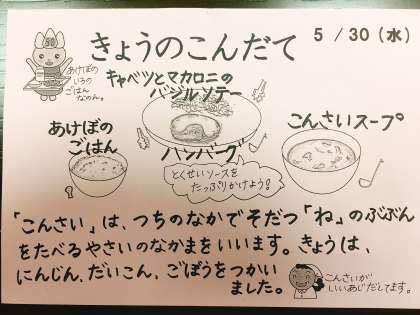 きょうのこんだて
5/30(水)
50
あけぼの
いろの
ごはん
なのん。
キャベツとマカロニの
バジルソテー
あけぼの
ごはん
ハンバーグ
こんさいスープ
とくせいソースを
たっぷりかけよう!
「こんさい」は、つちのなかでそだつ「ね」のぶぶん
をたべるやさいのなかまをいいます。きょうは、
にんじん、だいこん、ごぼうをつかい
ました。
こんさいが
いいあじだしてます。